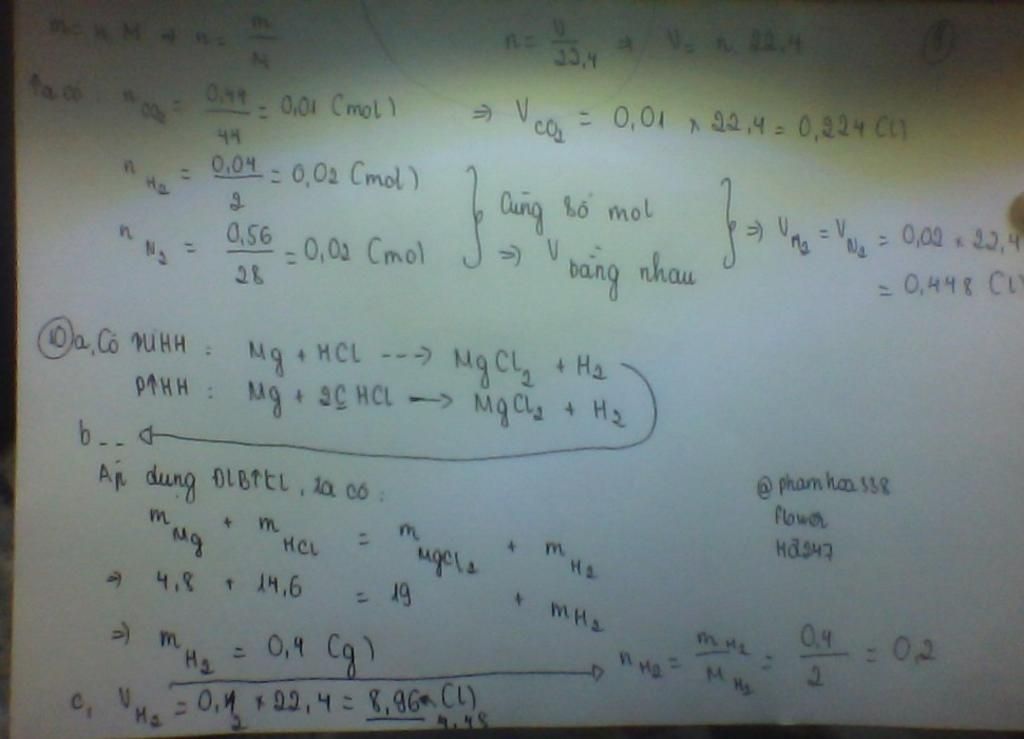 m = n. M => n = m/M n = V/22,4 => V = n. 22,4 8
Ta có: n CO2 = 0,44/44 = 0,01 (mol) => V CO2 = 0,01 x 22,4 = 0,224 (l)
n H2 = 0,04/2 = 0,02 (mol)
n N2 = 0,56/28 = 0,02 (mol) } Cùng số mol => V bằng nhau } => V H2 = V N2 = 0,02 x 22,4
= 0,448 (l)
10 a, Có : Mg + HCl ---> MgCl2 + H2
PTHH : Mg + 2 HCl —> MgCl2 + H2
b--
Áp dụng ĐLBTKL, ta có:
m Mg + m HCl = m MgCl2 + m H2
=> 4,8 + 14,6 = 19 + m H2
=> m H2 = 0,4 (g) n H2 = m H2/M H2 = 0,4/2 = 0,2
c, V H2 = 0,2 x 22,4 = 8,96 (l)
4,48
@phamhoa338
flower
H2247